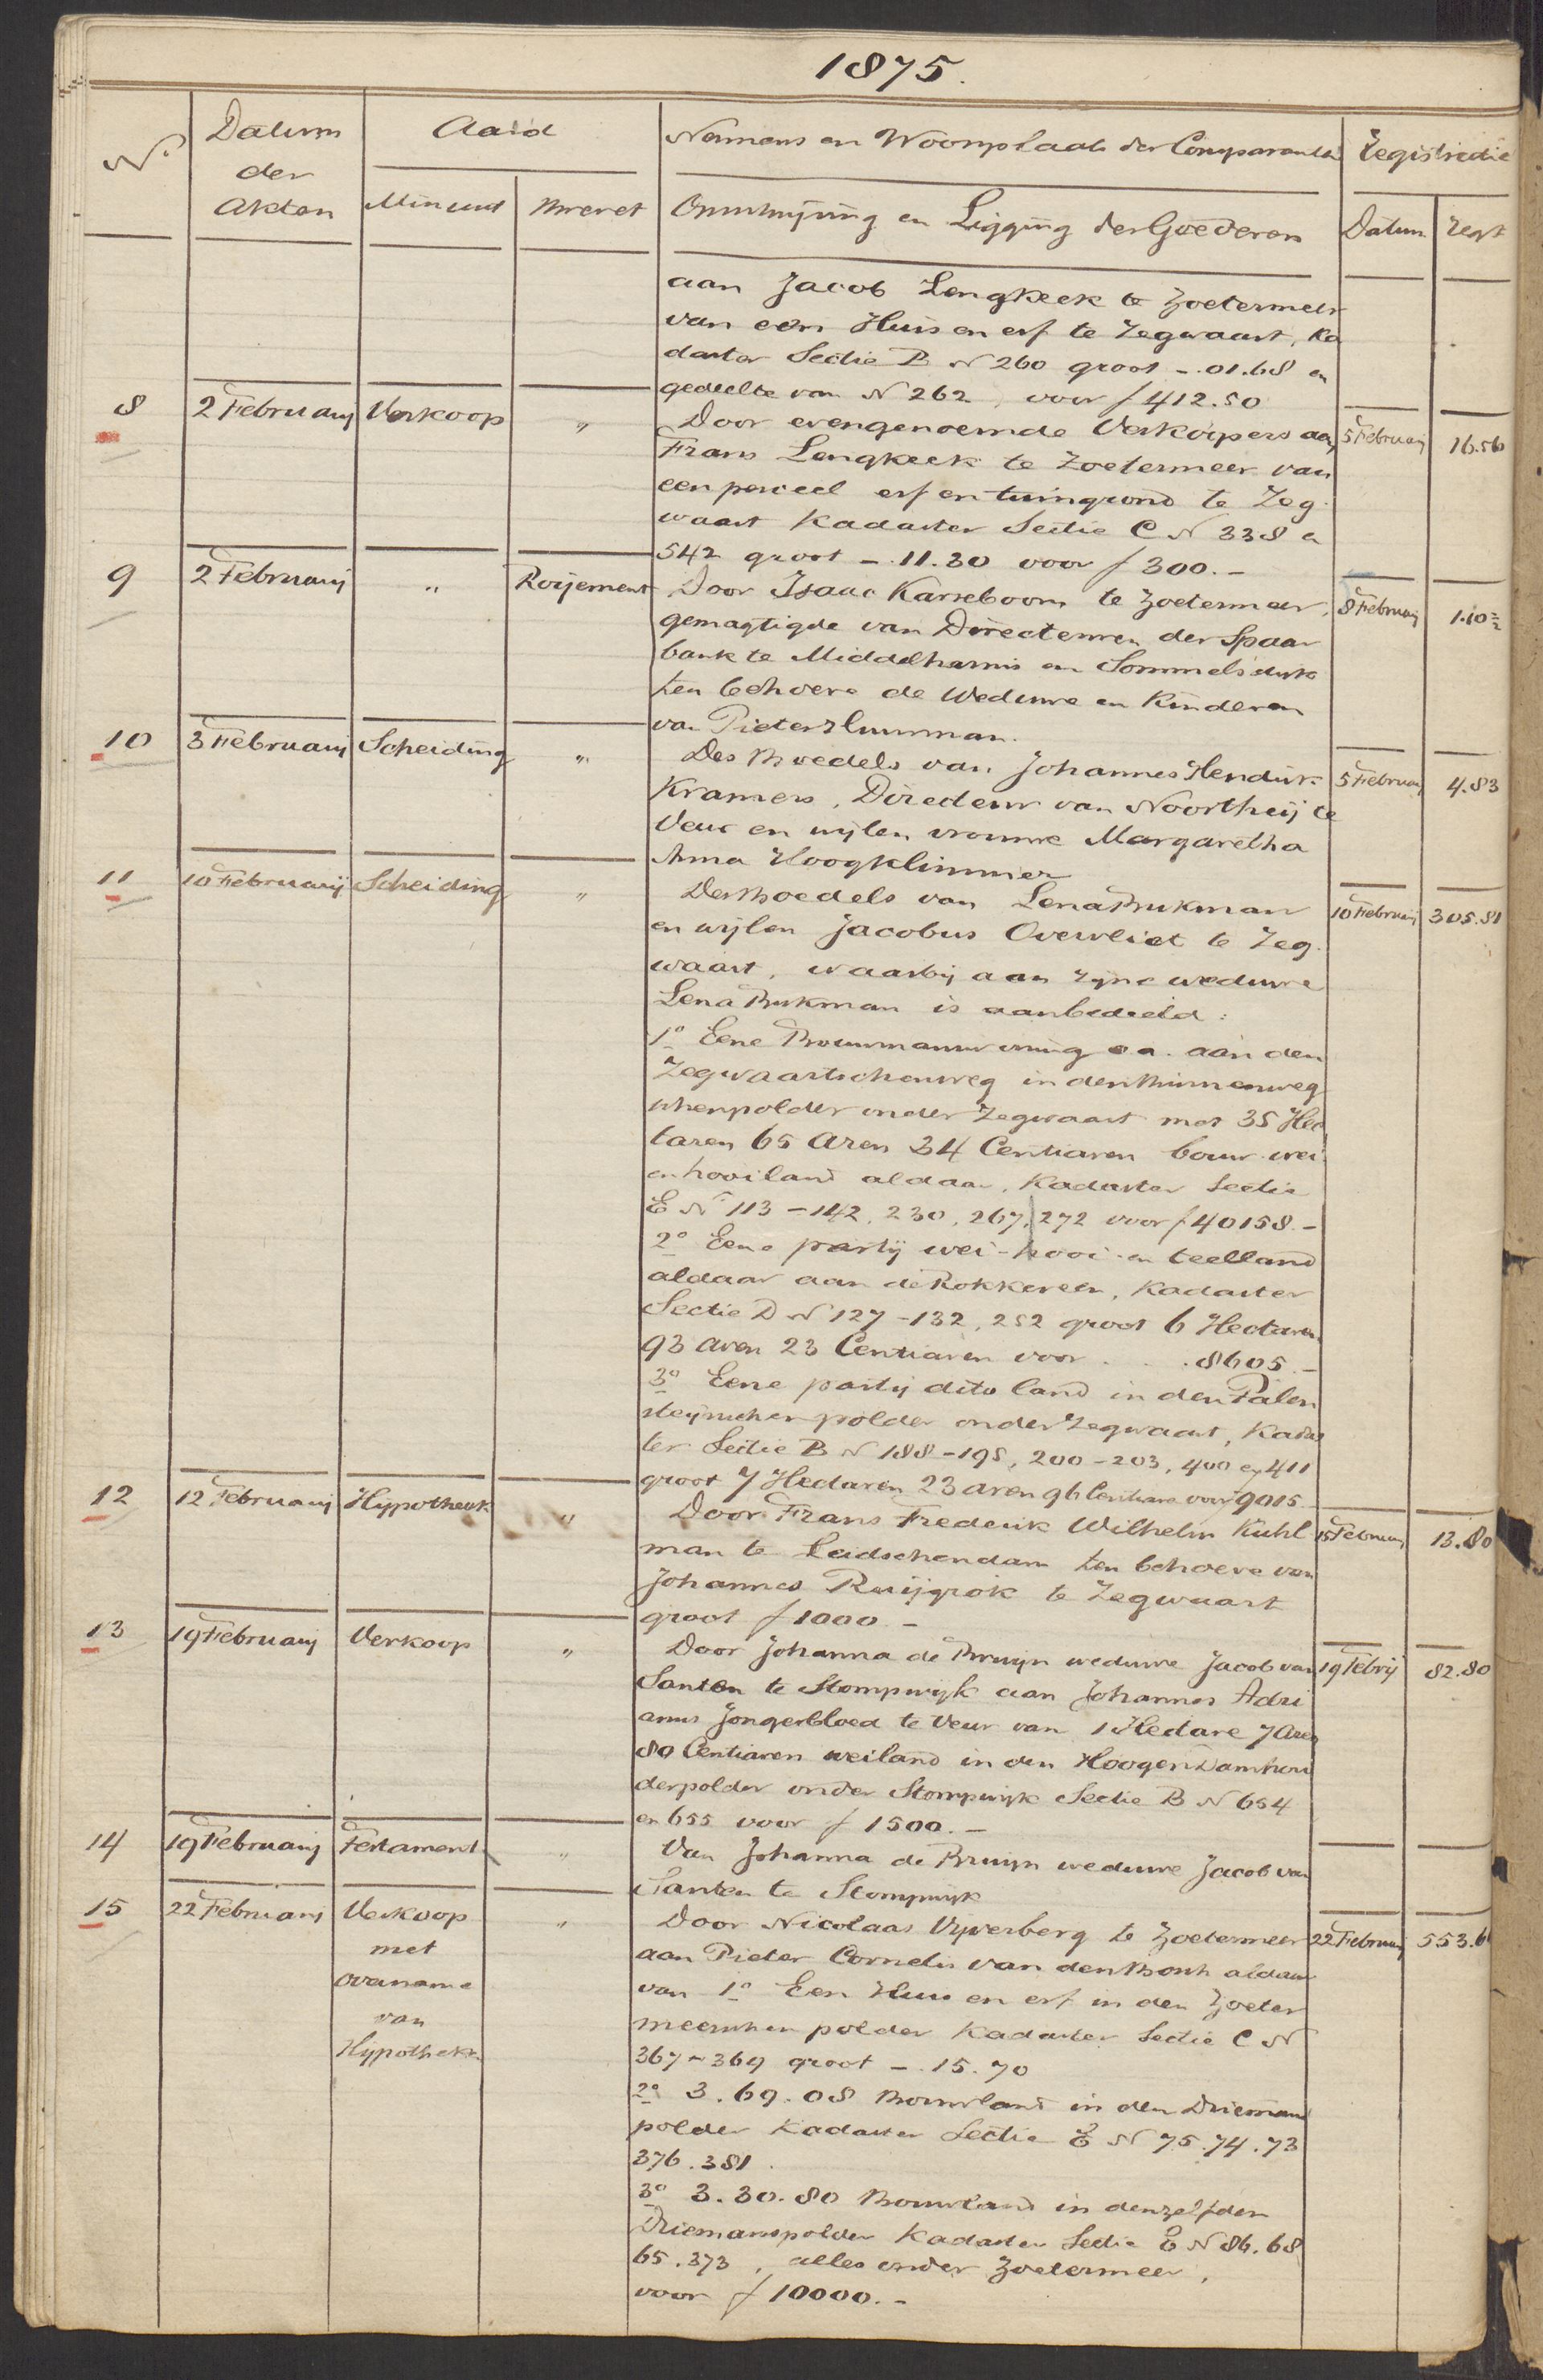 1875.
No.
Datum
der
Akten
Aard
Minuut
Brevet
Namens en Woonplaats der Comparanten
Omschrijving en Ligging der Goederen
Registratie
Datum
Regt
aan Jacob Lengkeek te Zoetermeer
van een Huis en erf te Zegwaart, Ka
daster Sectie B N 260 groot -.01.68 en
gedeelte van N 262, voor f 412.50
8 2 Februarij Verkoop " Door evengenoemde Verkoopers aan 5 Februarij 16.56
Frans Lengkeek te Zoetermeer van
een perceel erf en tuingrond te Zeg-
waart Kadaster Sectie C N 338 en
542 groot -.11.30 voor f 300.-
9 2 Februarij " Roijement Door Isaac Karreboom te Zoetermeer, 8 Februarij 1.10½
gemagtigde van Directeuren der Spaar
bank te Middelharnis en Sommelsdijk
ten behoeve de Weduwe en Kinderen
van Pieter
10 3 Februarij Scheiding " Des Boedels van Johannes Hendrik 5 Februarij 4.83
Kramers, Directeur van Noortheij te
Veur en wijlen vrouwe Margaretha
Anna Hoogklimmer
11 10 Februarij Scheiding " Des Boedels van Lena Brukman 10 Februarij 305.81
en wijlen Jacobus Oververliet te Zeg-
waart, waarbij aan zyne weduwe
Lena Brukman is aanbedeeld:
1o Eene Bouwmanswoning c.a. aan den
Zegwaartschenweg in den Binnenweg
schenpolder onder Zegwaart met 35 Hec
taren 65 Aren 34 Centiaren bouw- wei-
en hooiland aldaar, Kadaster Sectie
E No 113-142, 230, 267, 272 voor f 40158.-
2o Eene partij wei- hooi- en teelland
aldaar aan de Rokkeveen, Kadaster
Sectie D N 127-132, 252 groot 6 Hectaren
93 aren 23 Centiaren voor . . . 8605.-
3o Eene partij dito land in den Palen
steijnschen polder onder Zegwaart, Kadas
ter Sectie B N 188-198, 200-203, 400 en 411
groot 7 Hectaren 23 aren 96 Centiaren voor f 9015.-
12 12 Februarij Hypotheek " Door Frans Frederik Wilhelm Kuhl 15 Februarij 13.80
man te Leidschendam ten behoeve van
Johannes Ruijgrok te Zegwaart
groot f 1000.-
13 19 Februarij Verkoop " Door Johanna de Bruijn weduwe Jacob van 19 Febrij 82.80
Santen te Stompwijk aan Johannes Adri
anus Jongerbloed te Veur van 1 Hectare 7 Aren
80 Centiaren weiland in den Hoogen Damhou
derpolder onder Stompwijk Sectie B N 654
en 655 voor f 1500.-
14 19 Februarij Testament " Van Johanna de Bruijn weduwe Jacob van
Santen te Stompwijk
15 22 Februarij Verkoop " Door Nicolaas Vijverberg te Zoetermeer 22 Februarij 553.6
met aan Pieter Cornelis van den Bosch aldaar
overname van 1o Een Huis en erf in den Zoeter
van meerschen polder Kadaster Sectie C N
Hypotheek 367-369 groot -.15.70
2o 3.69.08 Bouwland in den Driemans
polder Kadaster Sectie E N 75.74.73
376.381.
3o 3.30.80 Bouwland in denzelfden
Driemanspolder Kadaster Sectie E N 86.68
65.373, alles onder Zoetermeer,
voor f 10000.-